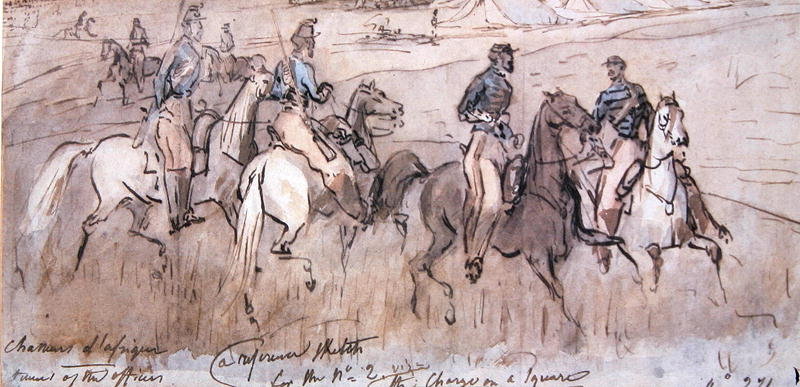 Chasseurs d'afrique
of the officers
(a reference sketch
for the No 2 the Charge on a Square